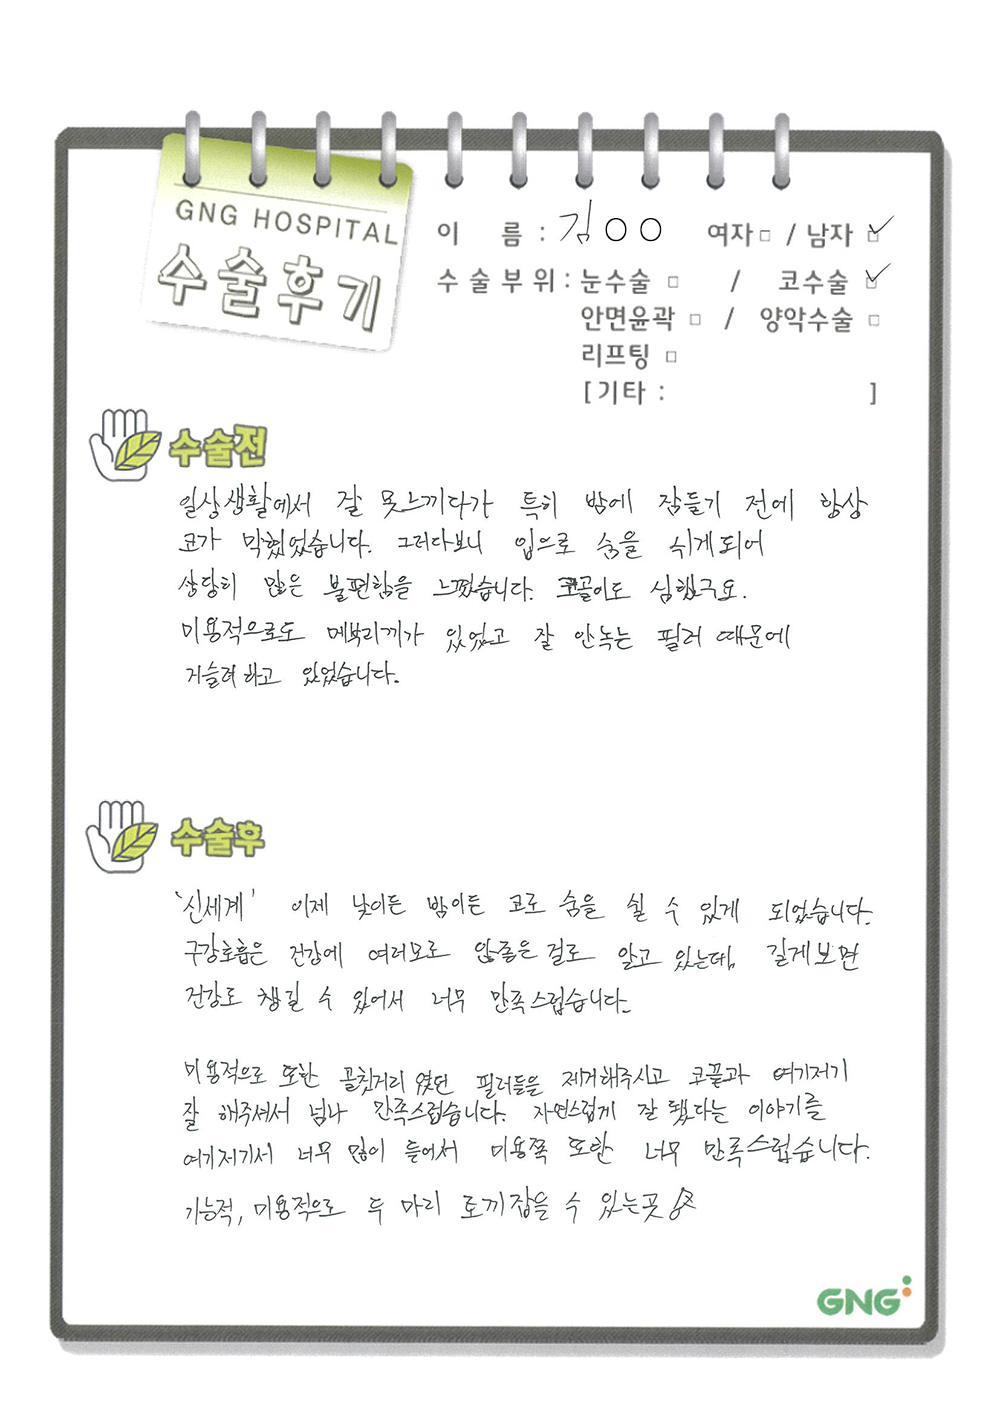 GNG HOSPITAL
수술후기
이 름 : 김○○ 여자□ / 남자☑
수술부위 : 눈수술 □ / 코수술 ☑
안면윤곽 □ / 양악수술 □
리프팅 □
[기타 : ]
수술전
일상생활에서 잘 못느끼다가 특히 밤에 잠들기 전에 항상
코가 막혔었습니다. 그러다보니 입으로 숨을 쉬게되어
상당히 많은 불편함을 느꼈습니다. 코골이도 심했구요.
미용적으로도 메부리끼가 있었고 잘 안녹는 필러 때문에
거슬려하고 있었습니다.
수술후
'신세계' 이제 낮이든 밤이든 코로 숨을 쉴 수 있게 되었습니다.
구강호흡은 건강에 여러모로 않좋은걸로 알고 있는데, 길게보면
건강도 챙길 수 있어서 너무 만족스럽습니다.
미용적으로 또한 골칫거리였던 필러들을 제거해주시고 코끝과 여기저기
잘 해주셔서 넘나 만족스럽습니다. 자연스럽게 잘 됐다는 이야기를
여기저기서 너무 많이 들어서 미용쪽 또한 너무 만족스럽습니다.
기능적, 미용적으로 두 마리 토끼잡을 수 있는곳
GNG